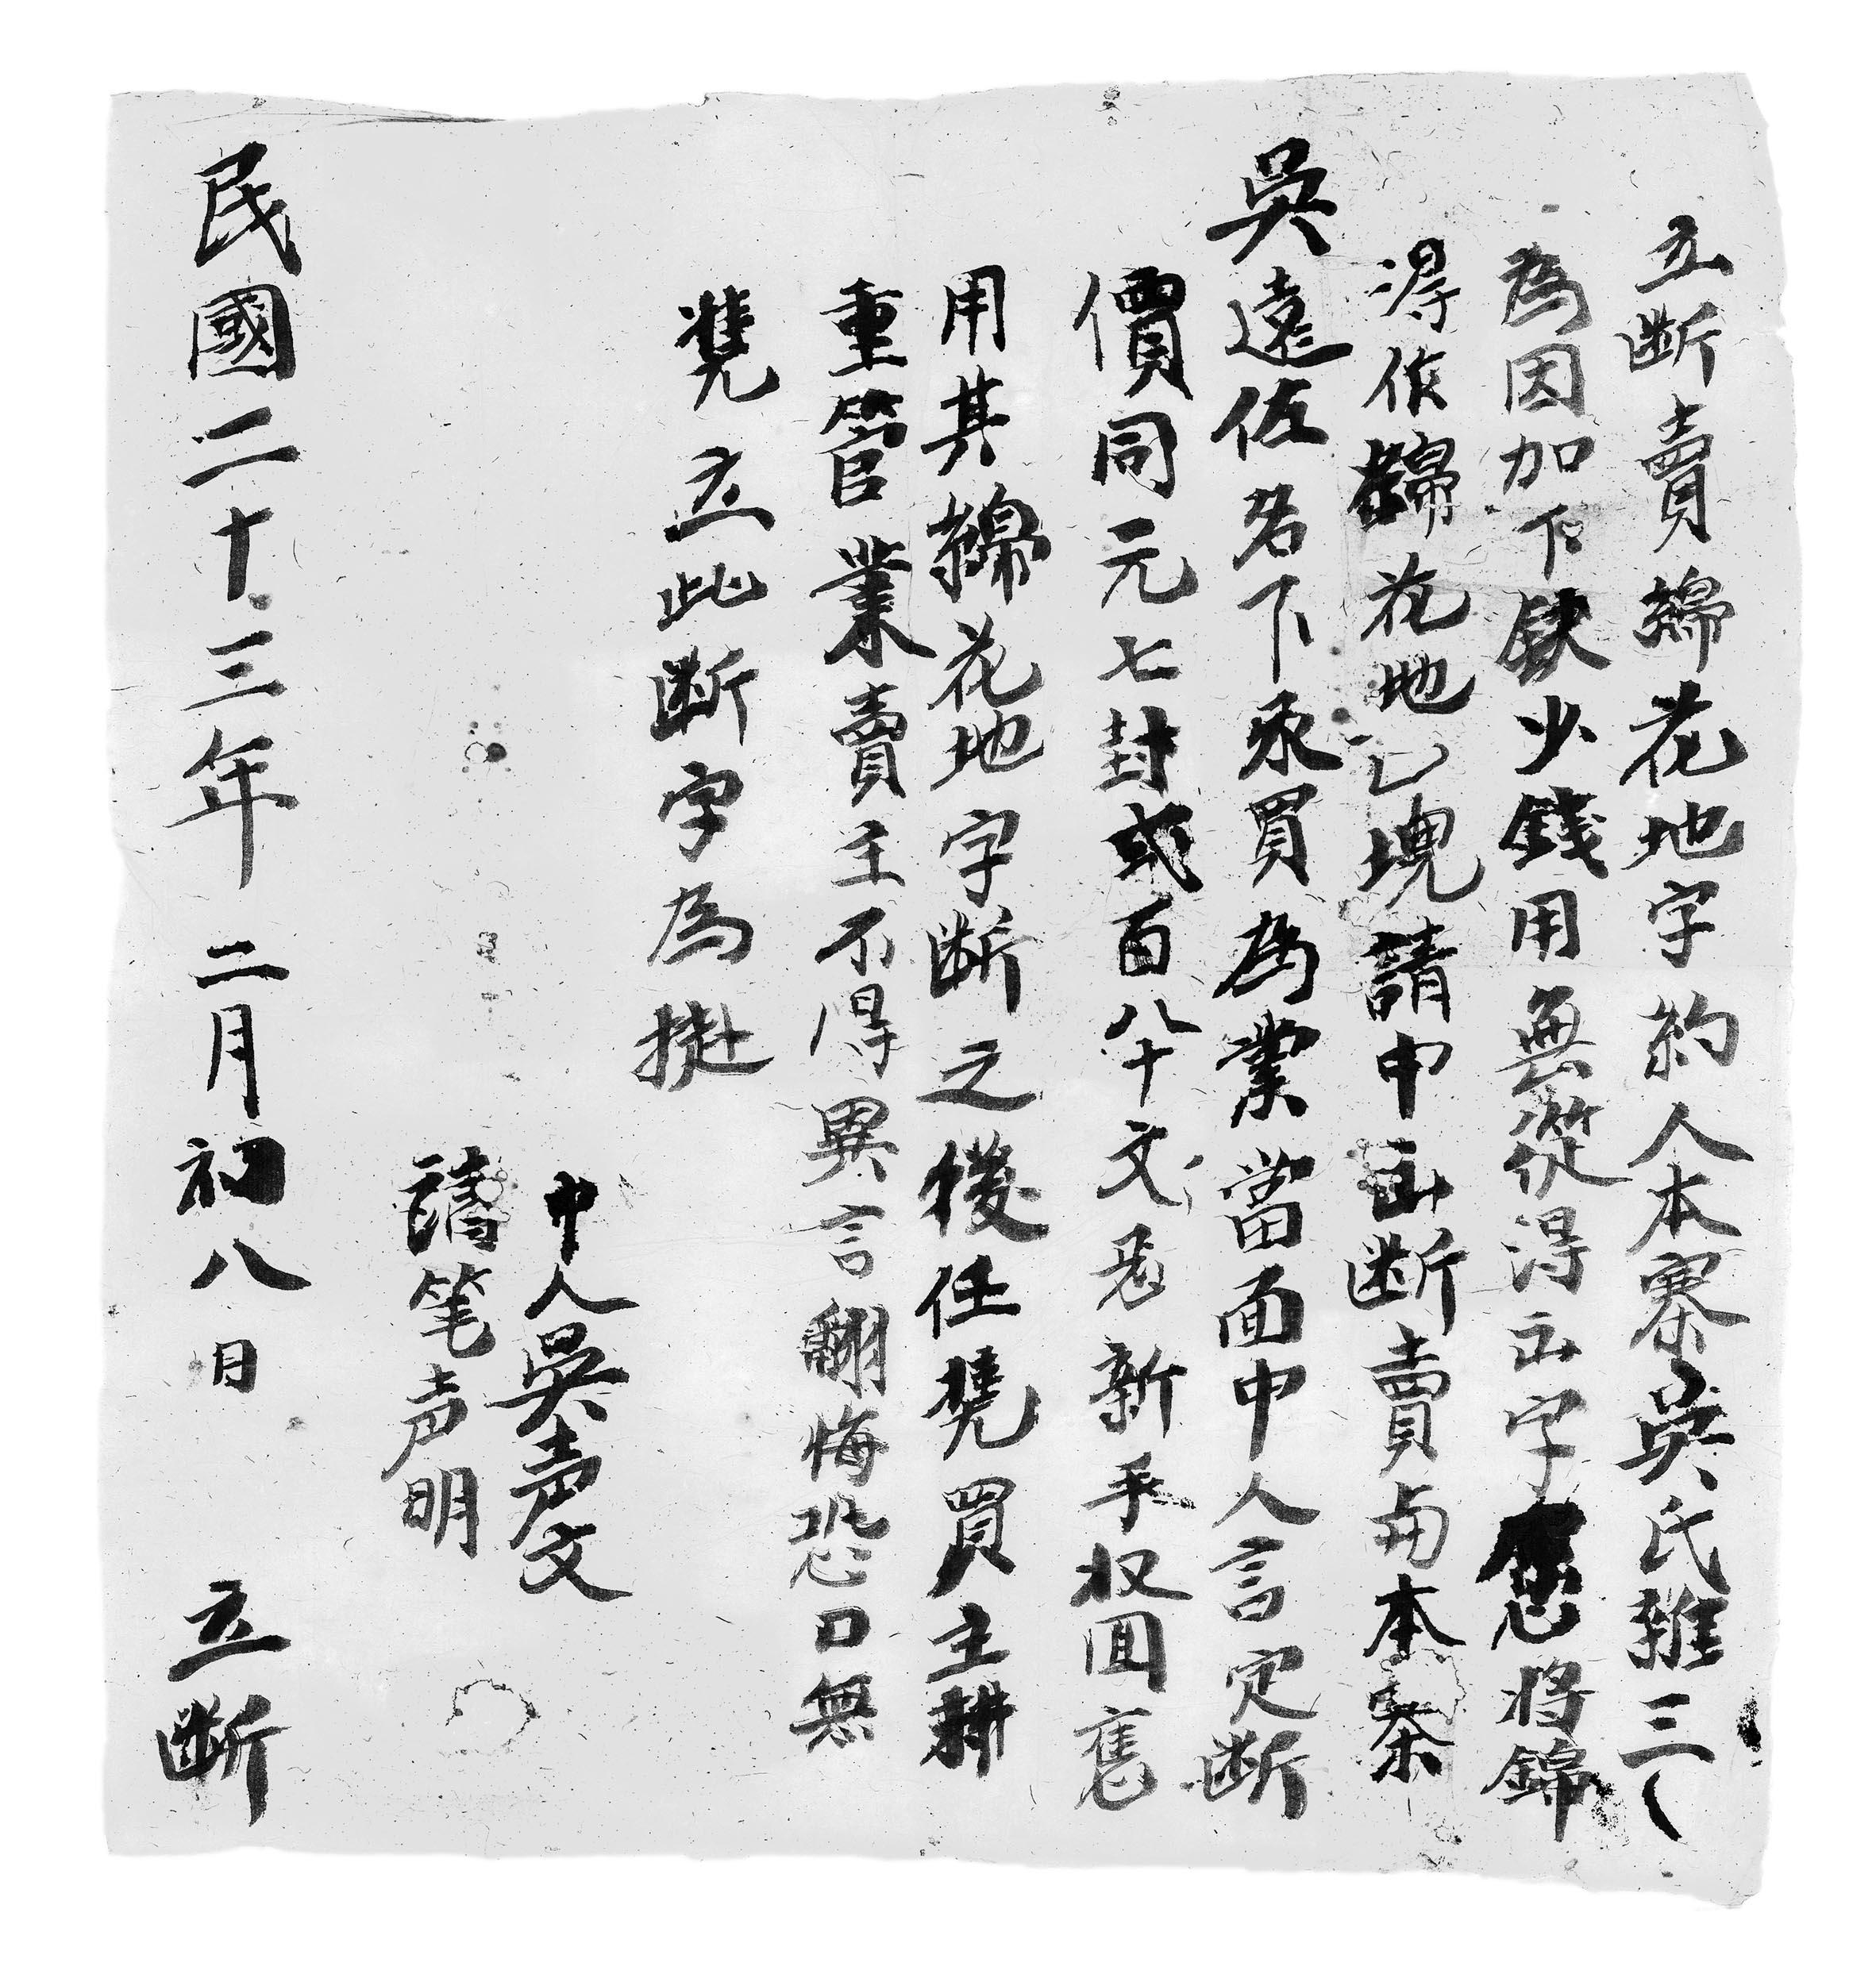 立断賣綿花地字約人本寨吳氏雖三
為因加下缺少錢用無從得出字将錦
得作綿花地乙塊請中出断賣与本寨
吳遠佐名下承買為業當面中人言定断
價同元七封弍百八十文是新手收回舊
用其綿花地字断之後任凴買主耕
重管業賣主不得異言翻悔恐口無
凴立此断字為㨿
中人吳声文
請笔声明
民國二十三年二月初八日 立断